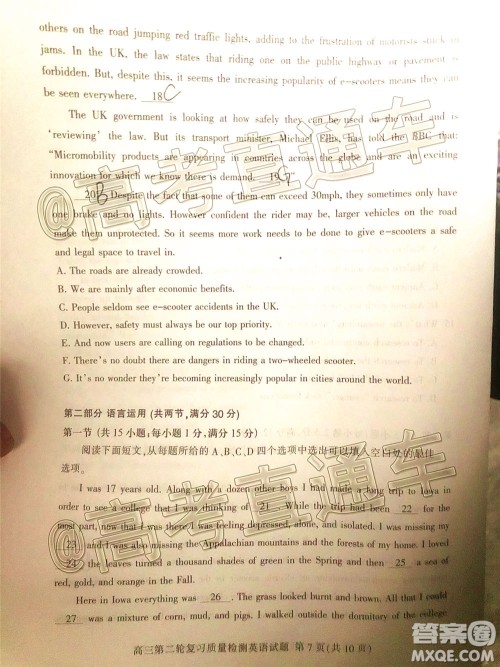 others on the road jumping red traffic lights, adding to the frustration of motorists stuck in
jams. In the UK, the law states that riding one on the public highway or pavement is
forbidden. But, despite this, it seems the increasing popularity of e-scooters means they can
be seen everywhere. 18 C
The UK government is looking at how safely they can be used on the road and is
'reviewing' the law. But its transport minister, Michael Ellis, has told the BBC, that:
"Micromobility products are appearing in countries across the globe and are an exciting
innovation for which we know there is demand. 19 G "
20 B Despite the fact that some of them can exceed 30mph, they sometimes only have
one brake and no lights. However confident the rider may be, larger vehicles on the road
make them unprotected. So it seems more work needs to be done to give e-scooters a safe
and legal space to travel in.
A. The roads are already crowded.
B. We are mainly after economic benefits.
C. People seldom see e-scooter accidents in the UK.
D. However, safety must always be our top priority.
E. And now users are calling on regulations to be changed.
F. There's no doubt there are dangers in riding a two-wheeled scooter.
G. It's no wonder they're becoming increasingly popular in cities around the world.
第二部分 语言运用 (共两节,满分 30 分)
第一节 (共 15 小题;每小题 1 分,满分 15 分)
阅读下面短文,从每题所给的 A、B、C、D 四个选项中选出可以填入空白处的最佳
选项。
I was 17 years old. Along with a dozen other boys I had made a long trip to Iowa in
order to see a college that I was thinking of 21 . While the trip had been 22 for the
most part, now that I was there I was feeling depressed, alone, and isolated. I was missing my
23 and I was also missing the Appalachian mountains and the forests of my home. I loved
24 the leaves turned a thousand shades of green in the Spring and then 25 a sea of
red, gold, and orange in the Fall.
Here in Iowa everything was 26 . The grass looked burnt and brown. All that I could
27 was a mixture of corn, mud, and pigs. I walked outside the dormitory of the college
高三第二轮复习质量检测英语试题 第 7 页(共 10 页)
@高考直通车
@高考直通车
@高考直通车
答案圈
MXQE.COM